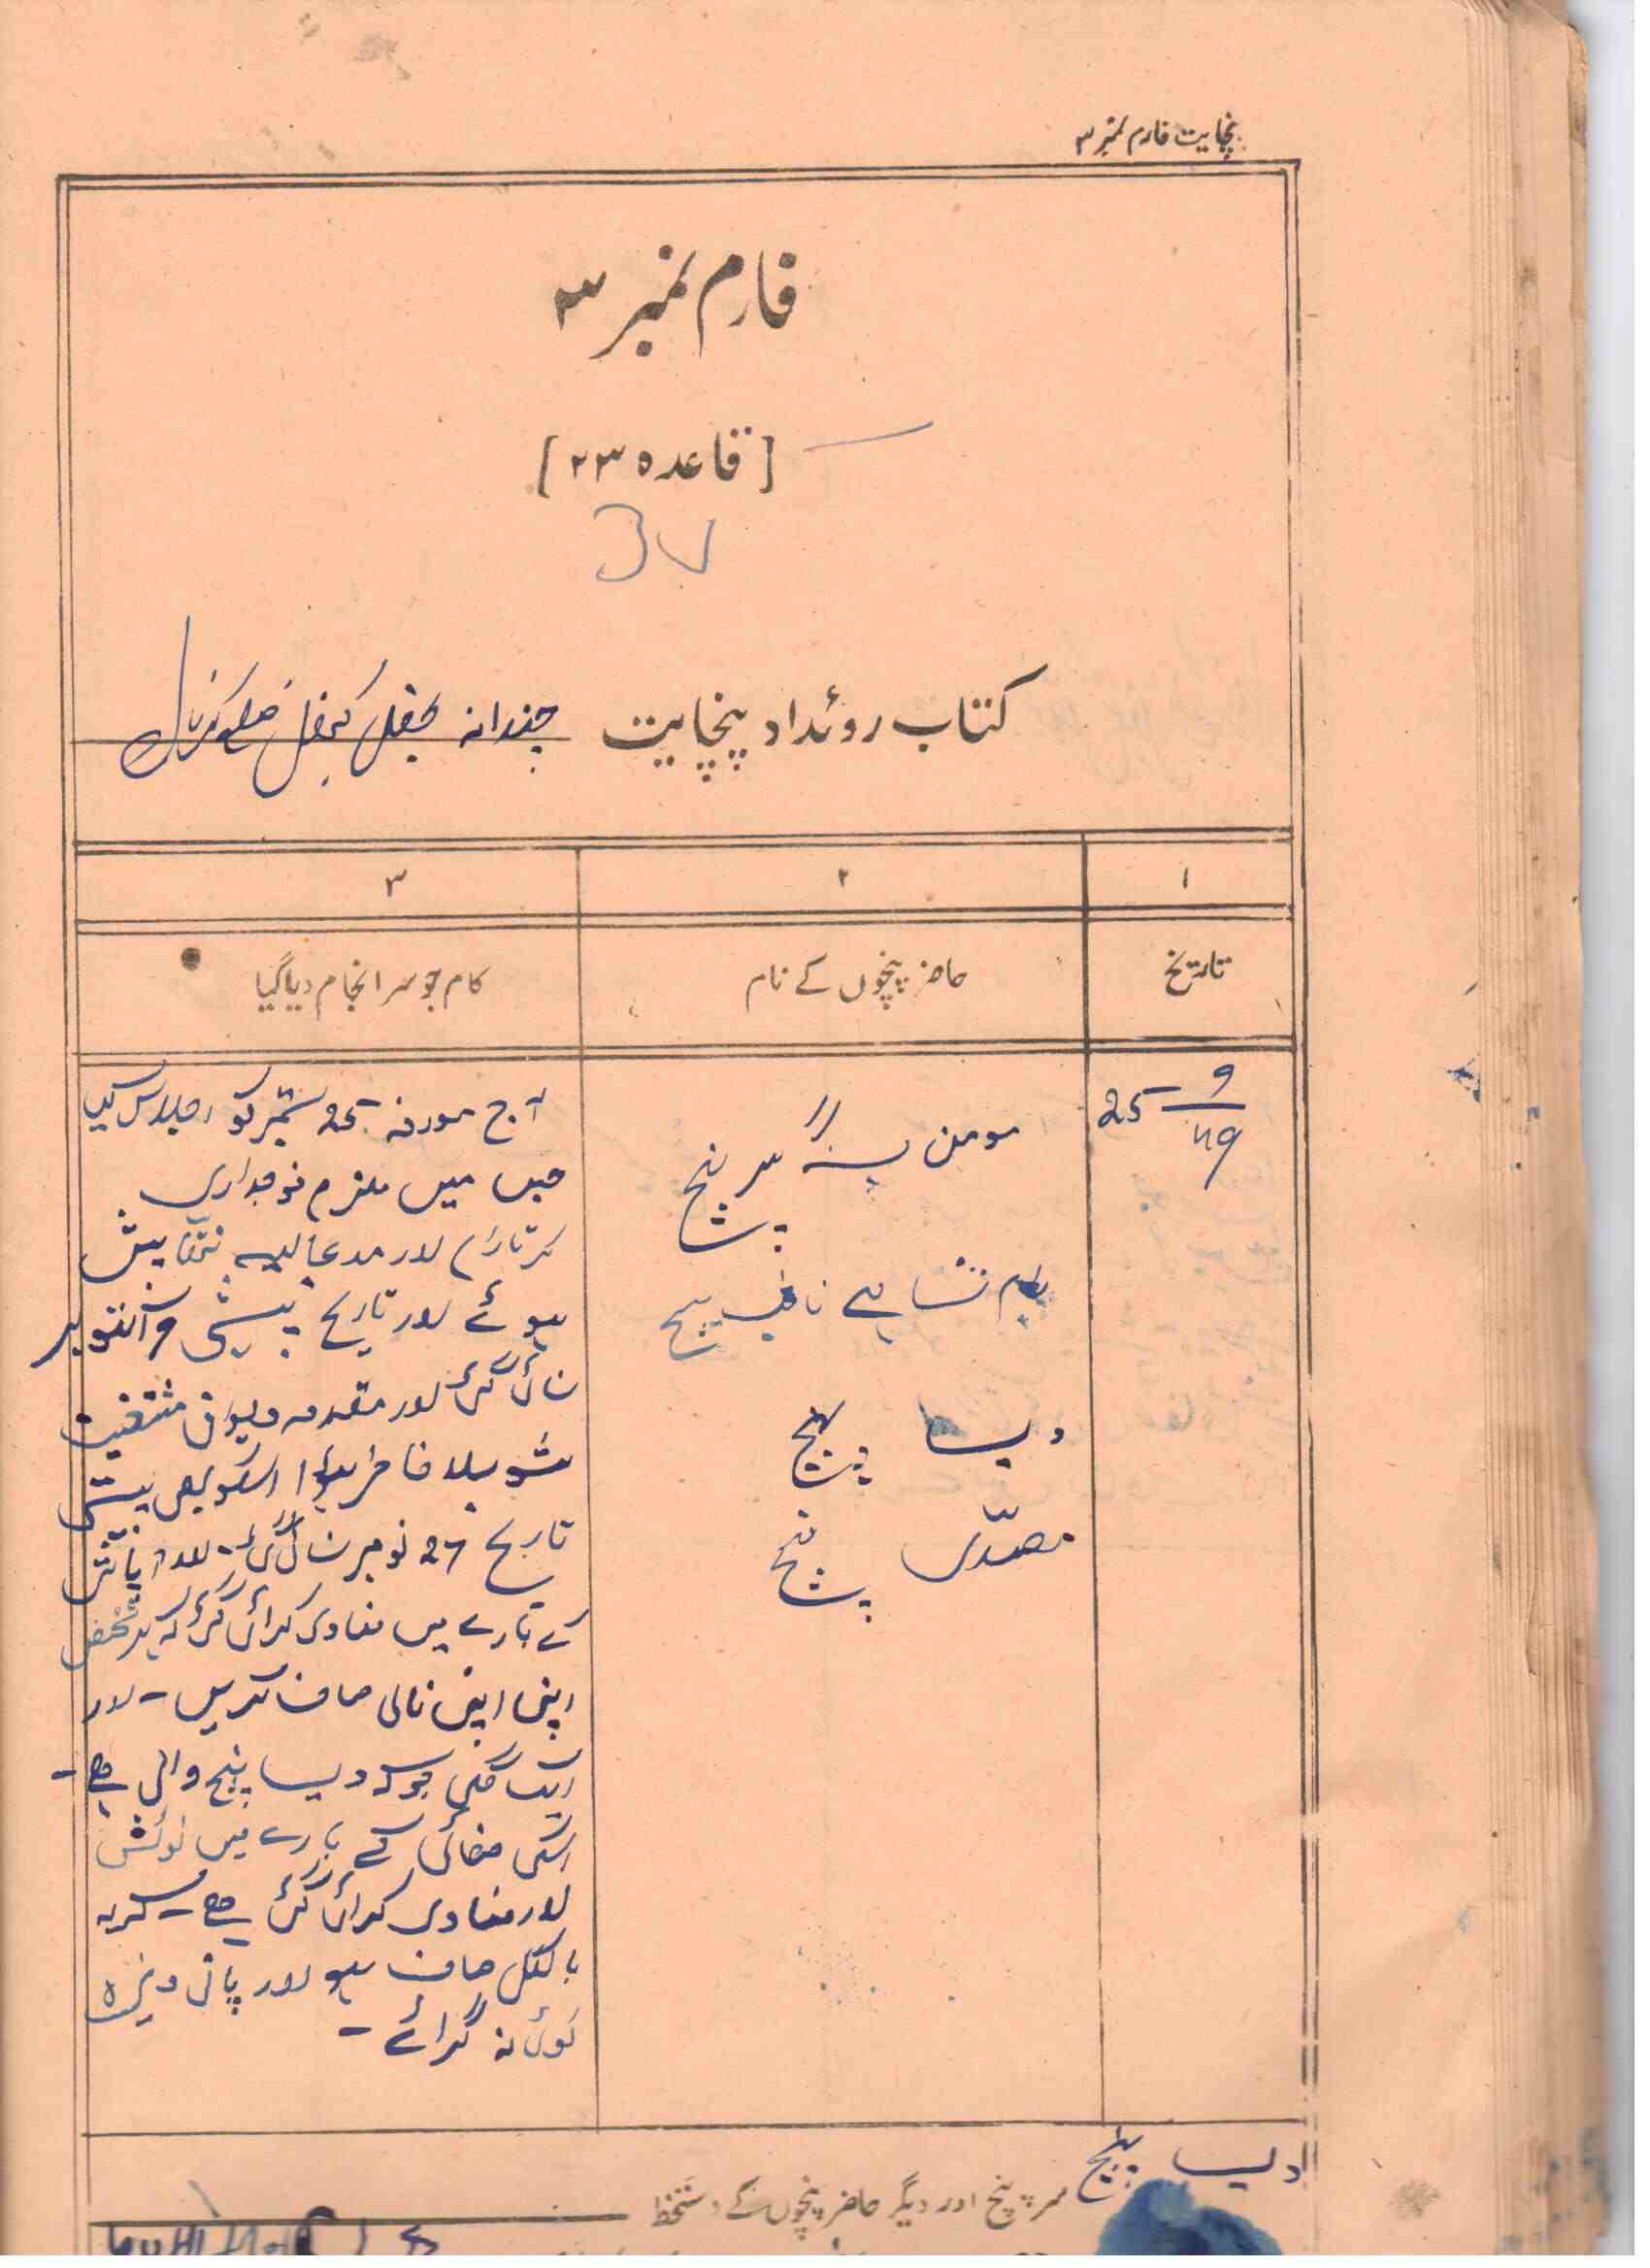 پنچایت فارم نمبر ۳
فارم نمبر ۳
[قاعدہ ۲۳]
کتاب روئداد پنچایت چندانہ تحصیل کیتھل ضلع کرنال
۱ ۲ ۳
تاریخ حاضر پنچوں کے نام کام جو سر انجام دیا گیا
25 9/49
مومن سنگھ سرپنچ
نائب پنچ
دیسا پنچ
مصدی پنچ
آج مورخہ 25 ستمبر کو اجلاس کیا
جس میں ملزم فوجداری
کرتارام اور مدعا علیہ پیش
ہوئے اور تاریخ پیشی 9 اکتوبر
سنائی گئی اور مقدمہ دیوانی
شو بلا اسکو بھی پیشی
تاریخ 27 نومبر سنائی گئی۔ اور
کے بارے میں منادی کرائی گئی کہ ہر شخص
اپنی اپنی نالی صاف کریں۔ اور
ایک گلی جو کہ دیسا پنچ والی ہے۔
اسکی صفائی کے بارے میں نوٹس
اور منادی کرائی گئی ہے۔ کہ یہ
بالکل صاف ہو اور پانی وغیرہ
کوئی نہ گرائے۔
دیسا پنچ
سرپنچ اور دیگر حاضر پنچوں کے دستخط